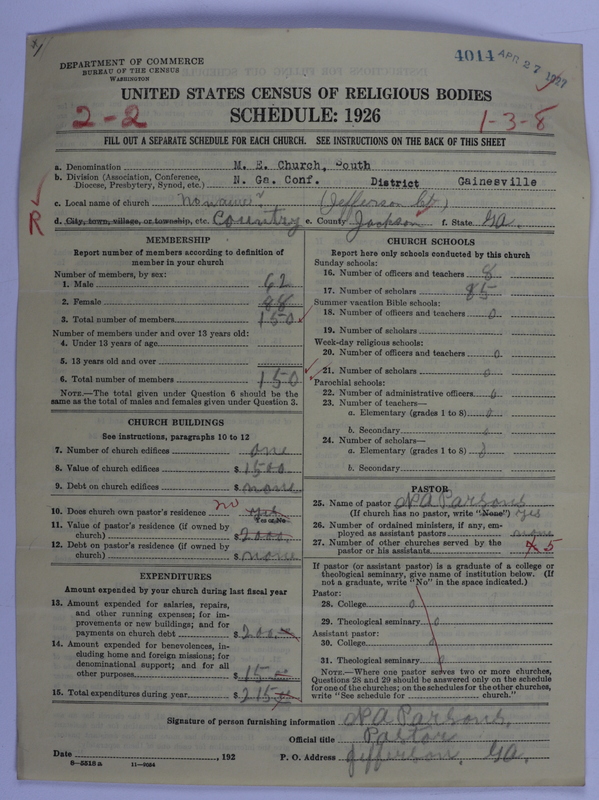 $1
4014 APR 27 1927
DEPARTMENT OF COMMERCE
BUREAU OF THE CENSUS
WASHINGTON
UNITED STATES CENSUS OF RELIGIOUS BODIES
2-2 SCHEDULE: 1926 1-3-8
FILL OUT A SEPARATE SCHEDULE FOR EACH CHURCH. SEE INSTRUCTIONS ON THE BACK OF THIS SHEET
a. Denomination M. E. Church, South
b. Division (Association, Conference, Diocese, Presbytery, Synod, etc.) N. Ga. Conf. District Gainesville
c. Local name of church (Jefferson Ct.)
R
d. City, town, village, or township, etc. Country e. County Jackson f. State Ga.
MEMBERSHIP
Report number of members according to definition of
member in your church
Number of members, by sex:
1. Male 62
2. Female 88
3. Total number of members 150
Number of members under and over 13 years old:
4. Under 13 years of age
5. 13 years old and over
6. Total number of members 150
NOTE.—The total given under Question 6 should be
same as the total of males and females given under Question 3.
CHURCH BUILDINGS
See instructions, paragraphs 10 to 12
7. Number of church edifices one
8. Value of church edifices $1500
9. Debt on church edifices $ none
10. Does church own pastor's residence no yes
Yes or No
11. Value of pastor's residence (if owned by
church) $2000
12. Debt on pastor's residence (if owned by
church) $ none
EXPENDITURES
Amount expended by your church during last fiscal year
13. Amount expended for salaries, repairs,
and other running expenses; for im-
provements or new buildings; and for
payments on church debt $200
14. Amount expended for benevolences, in-
cluding home and foreign missions; for
denominational support; and for all
other purposes $15
15. Total expenditures during year $215
CHURCH SCHOOLS
Report here only schools conducted by this church
Sunday schools:
16. Number of officers and teachers 8
17. Number of scholars 85
Summer vacation Bible schools:
18. Number of officers and teachers 0
19. Number of scholars
Week-day religious schools:
20. Number of officers and teachers 0
21. Number of scholars 0
Parochial schools:
22. Number of administrative officers 0
23. Number of teachers—
a. Elementary (grades 1 to 8) 0
b. Secondary 0
24. Number of scholars—
a. Elementary (grades 1 to 8)
b. Secondary
PASTOR
25. Name of pastor N A Parsons
(If church has no pastor, write "None") yes
26. Number of ordained ministers, if any, em-
ployed as assistant pastors none
27. Number of other churches served by the
pastor or his assistants 5
If pastor (or assistant pastor) is a graduate of a college or
theological seminary, give name of institution below. (If
not a graduate, write "No" in the space indicated.)
Pastor:
28. College 0
29. Theological seminary 0
Assistant pastor:
30. College 0
31. Theological seminary 0
NOTE.—Where one pastor serves two or more churches,
Questions 28 and 29 should be answered only on the schedule
for one of the churches; on the schedules for the other churches,
write "See schedule for church."
Signature of person furnishing information N A Parsons,
Official title Pastor
Date , 192 P. O. Address Jefferson, Ga.
8-5518 a 11-9064